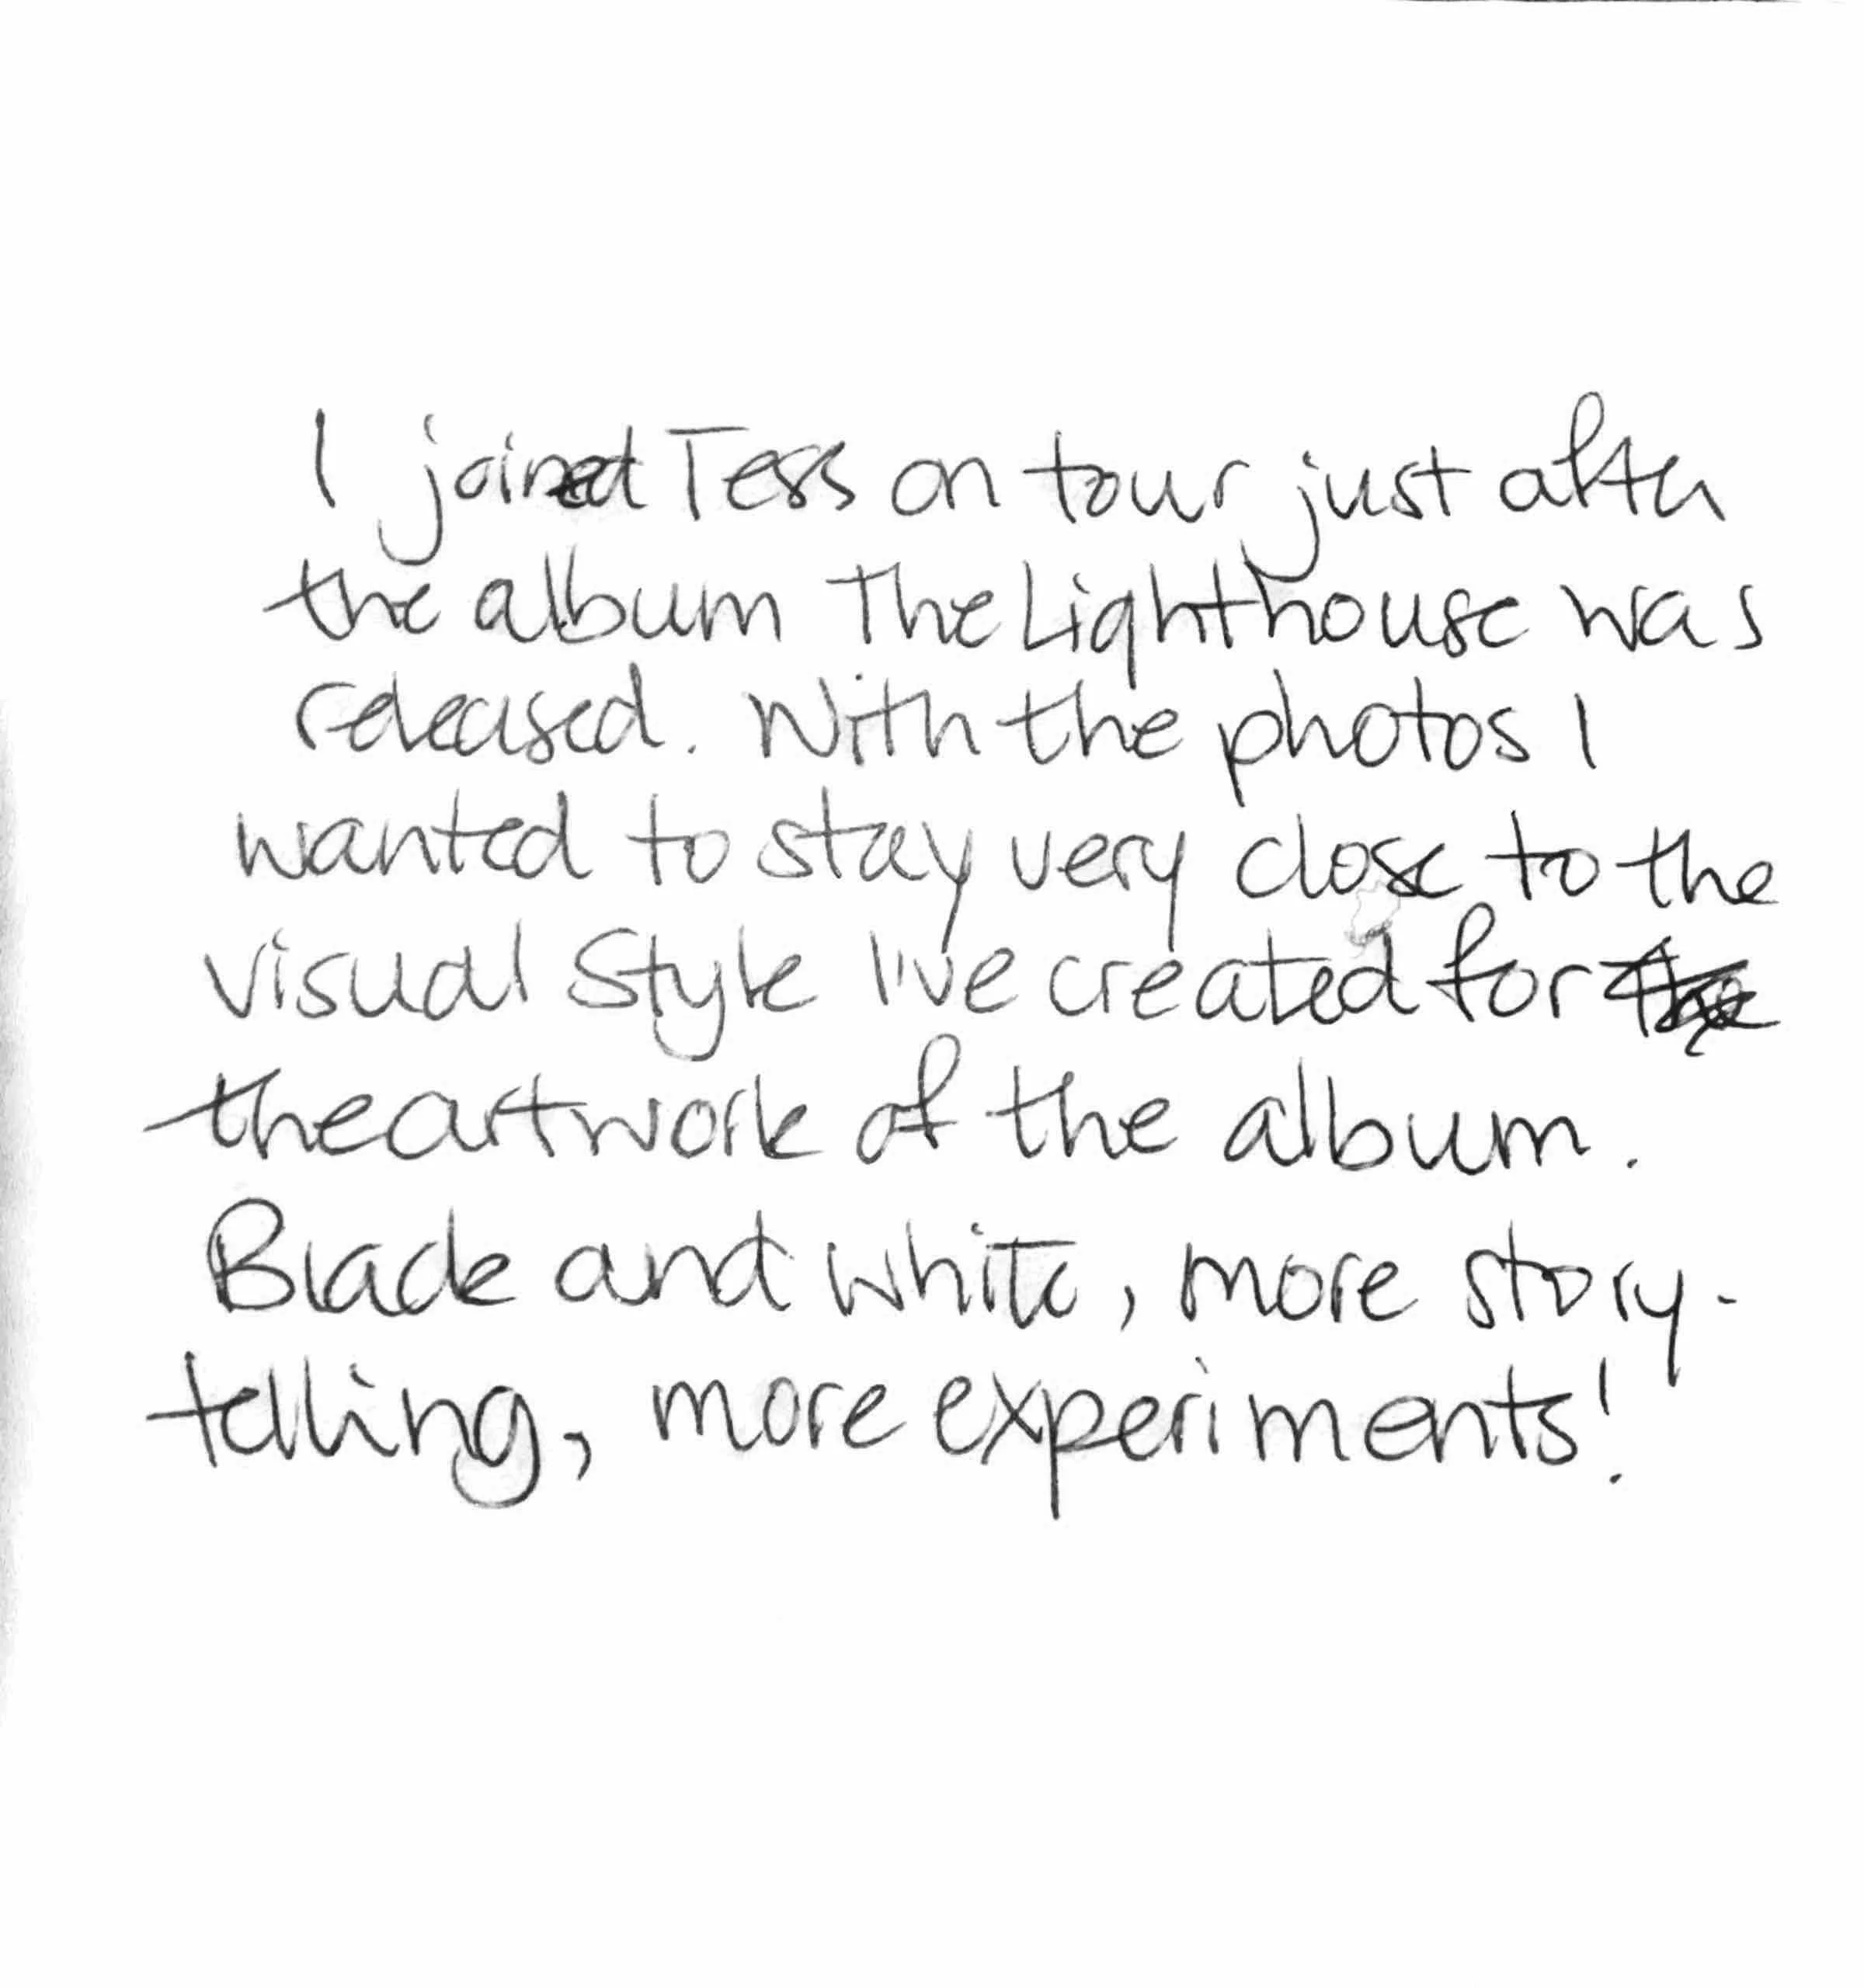 I joined Tess on tour just after
the album The Lighthouse was
released. With the photos I
wanted to stay very close to the
visual style I've created for
the artwork of the album.
Black and white, more story-
telling, more experiments!